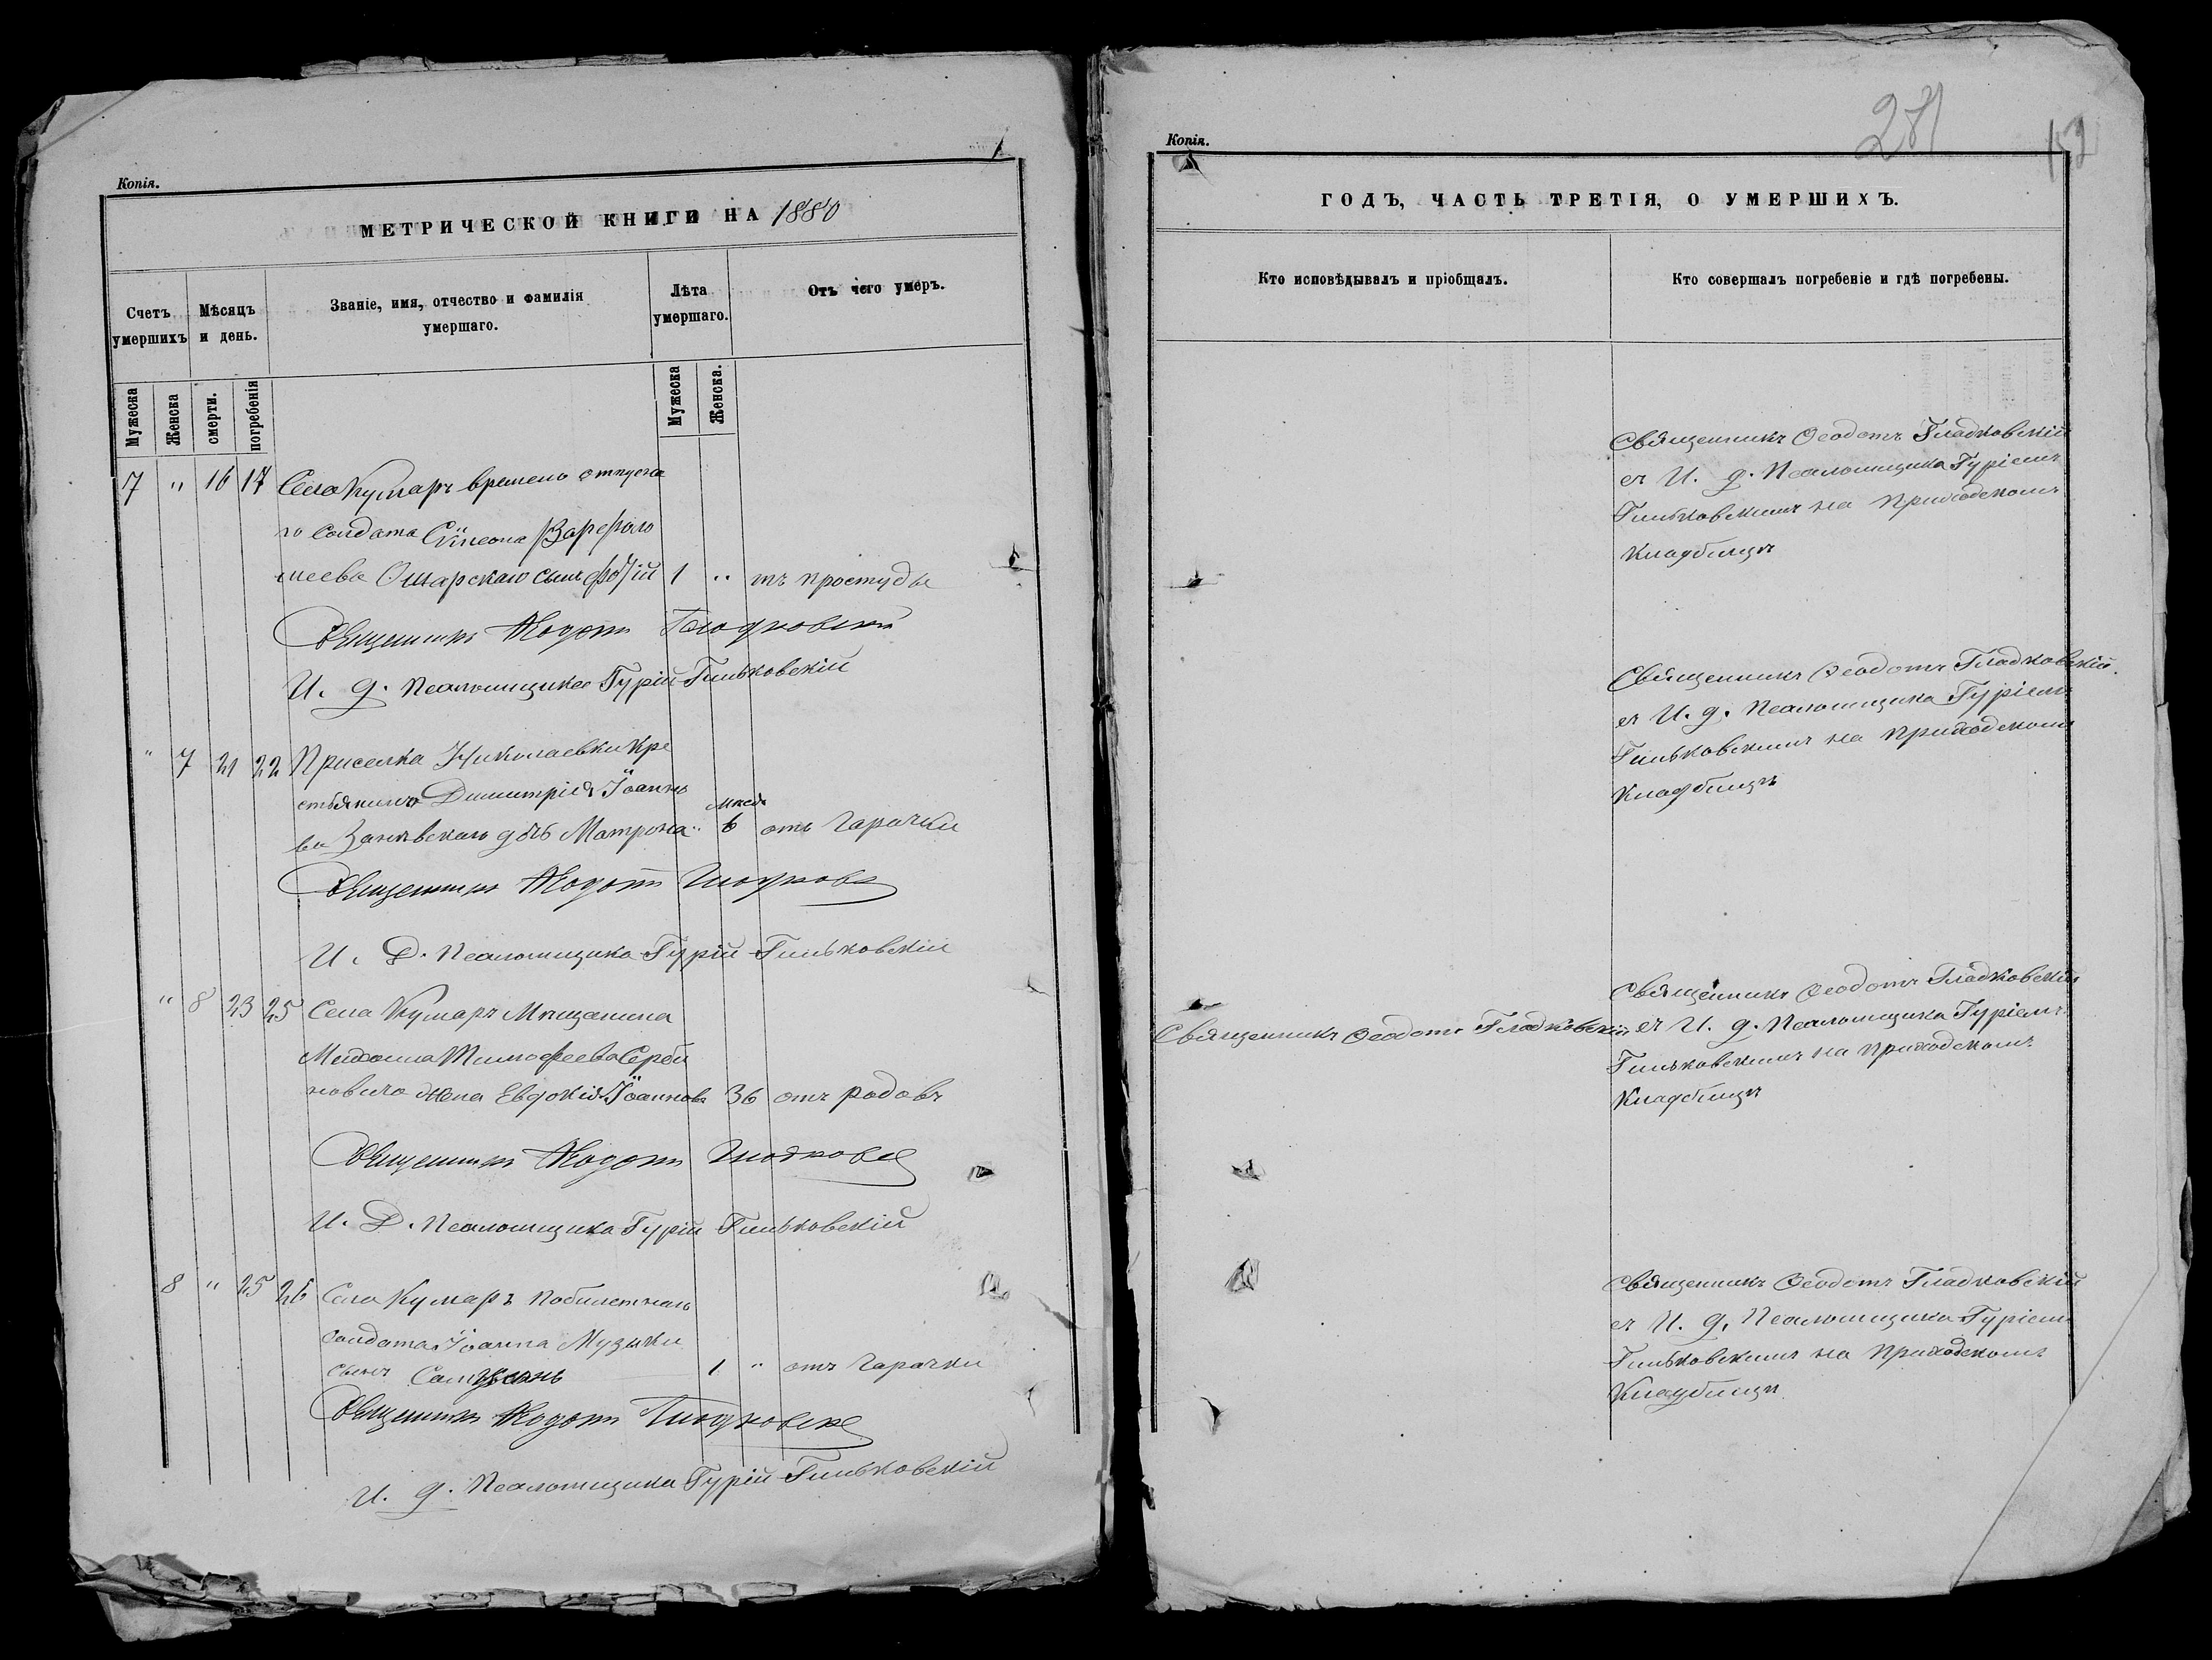 Копія.
МЕТРИЧЕСКОЙ КНИГИ НА 1880
Счетъ умершихъ
Мѣсяцъ и день.
Званіе, имя, отчество и фамилія умершаго.
Лѣта умершаго.
Отъ чего умеръ.
Мужеска
Женска
смерти.
погребенія
Мужеска
Женска.
7 " 16 17 Села Кумаръ времено отпускна
го солдата Сѵмеона Варѳоло
меева Омарскаго сынъ Фотій 1 " тъ простуды
Священникъ Ѳеодотъ Гладковскій
И. д. Псаломщика Гурій Гиньковскій
" 7 21 22 Приселка Николаевки кре
стьянина Димитрія Іоанно
ва Занквскаго дочь Матрона " мнсзв 6 отъ гарачки
Священникъ Ѳеодотъ Гладковс
И. Д. Псаломщика Гурій Гиньковскій
" 8 23 25 Села Кумаръ Мищанина
Михаила Тимофеева Серби
новича жена Евдокія Іоаннова 36 отъ родовъ
Священникъ Ѳеодотъ Гладковс
И. Д. Псаломщика Гурій Гиньковскій
8 " 25 26 Села Кумаръ побилетнаго
солдата Іоанна Музыки
сынъ 1 " отъ гарачки
Священникъ Ѳеодотъ Гладковск
И. д. Псаломщика Гурій Гиньковскій
Копія.
281
ГОДЪ, ЧАСТЬ ТРЕТІЯ, О УМЕРШИХЪ.
Кто исповѣдывалъ и пріобщалъ.
Кто совершалъ погребеніе и гдѣ погребены.
Священникъ Ѳеодотъ Гладковскій
съ И. д. Псаломщика Гуріемъ
Гиньковскимъ на приходскомъ
Кладбищѣ
Священникъ Ѳеодотъ Гладковскій.
съ И. д. Псаломщика Гуріемъ
Гиньковскимъ на приходскомъ
Кладбищѣ
Священникъ Ѳеодотъ Гладковскій
Священникъ Ѳеодотъ Гладковскій
съ И. д. Псаломщика Гуріемъ
Гиньковскимъ на приходскомъ
Кладбищѣ
Священникъ Ѳеодотъ Гладковскій
съ И. д. Псаломщика Гуріемъ
Гиньковскимъ на приходскомъ
Кладбищѣ